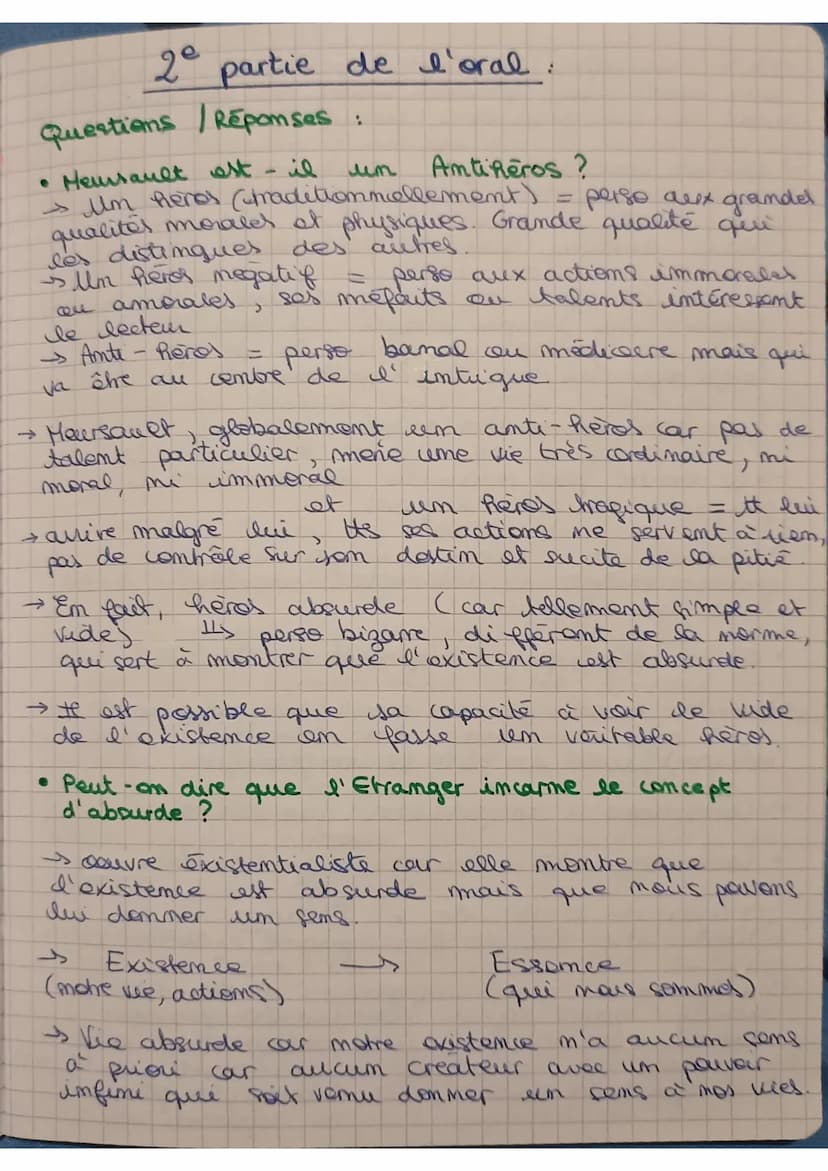 2e partie de l'oral :
Questions / Réponses :
• Meursault est-il un Antihéros ?
→ Un héros (traditionnellement) = perso aux grandes
qualités morales et physiques. Grande qualité qui
les distingues des autres.
→ Un héros négatif = perso aux actions immorales
ou amorales, ses méfaits ou talents intéressent
le lecteur
→ Anti-héros = perso banal ou médiocre mais qui
va être au centre de l'intrigue
→ Meursault, globalement un anti-héros car pas de
talent particulier, mène une vie très ordinaire, ni
moral, ni immoral
et un héros tragique = tt lui
→ arrive malgré lui, tts ses actions ne servent à rien,
pas de contrôle sur son destin et sucite de la pitié.
→ En fait, héros absurde (car tellement simple et
vide) ↳ perso bizarre, différent de la norme,
qui sert à montrer que l'existence est absurde.
→ Il est possible que sa capacité à voir le vide
de l'existence en fasse un véritable héros.
• Peut-on dire que l'Etranger incarne le concept
d'absurde ?
→ oeuvre éxistentialiste car elle montre que
l'existence est absurde mais que nous pouvons
lui donner un sens.
→ Existence → Essence
(notre vie, actions) (qui nous sommes)
→ Vie absurde car notre existence n'a aucun sens
à priori car aucun créateur avec un pouvoir
infini qui soit venu donner un sens à nos vies.